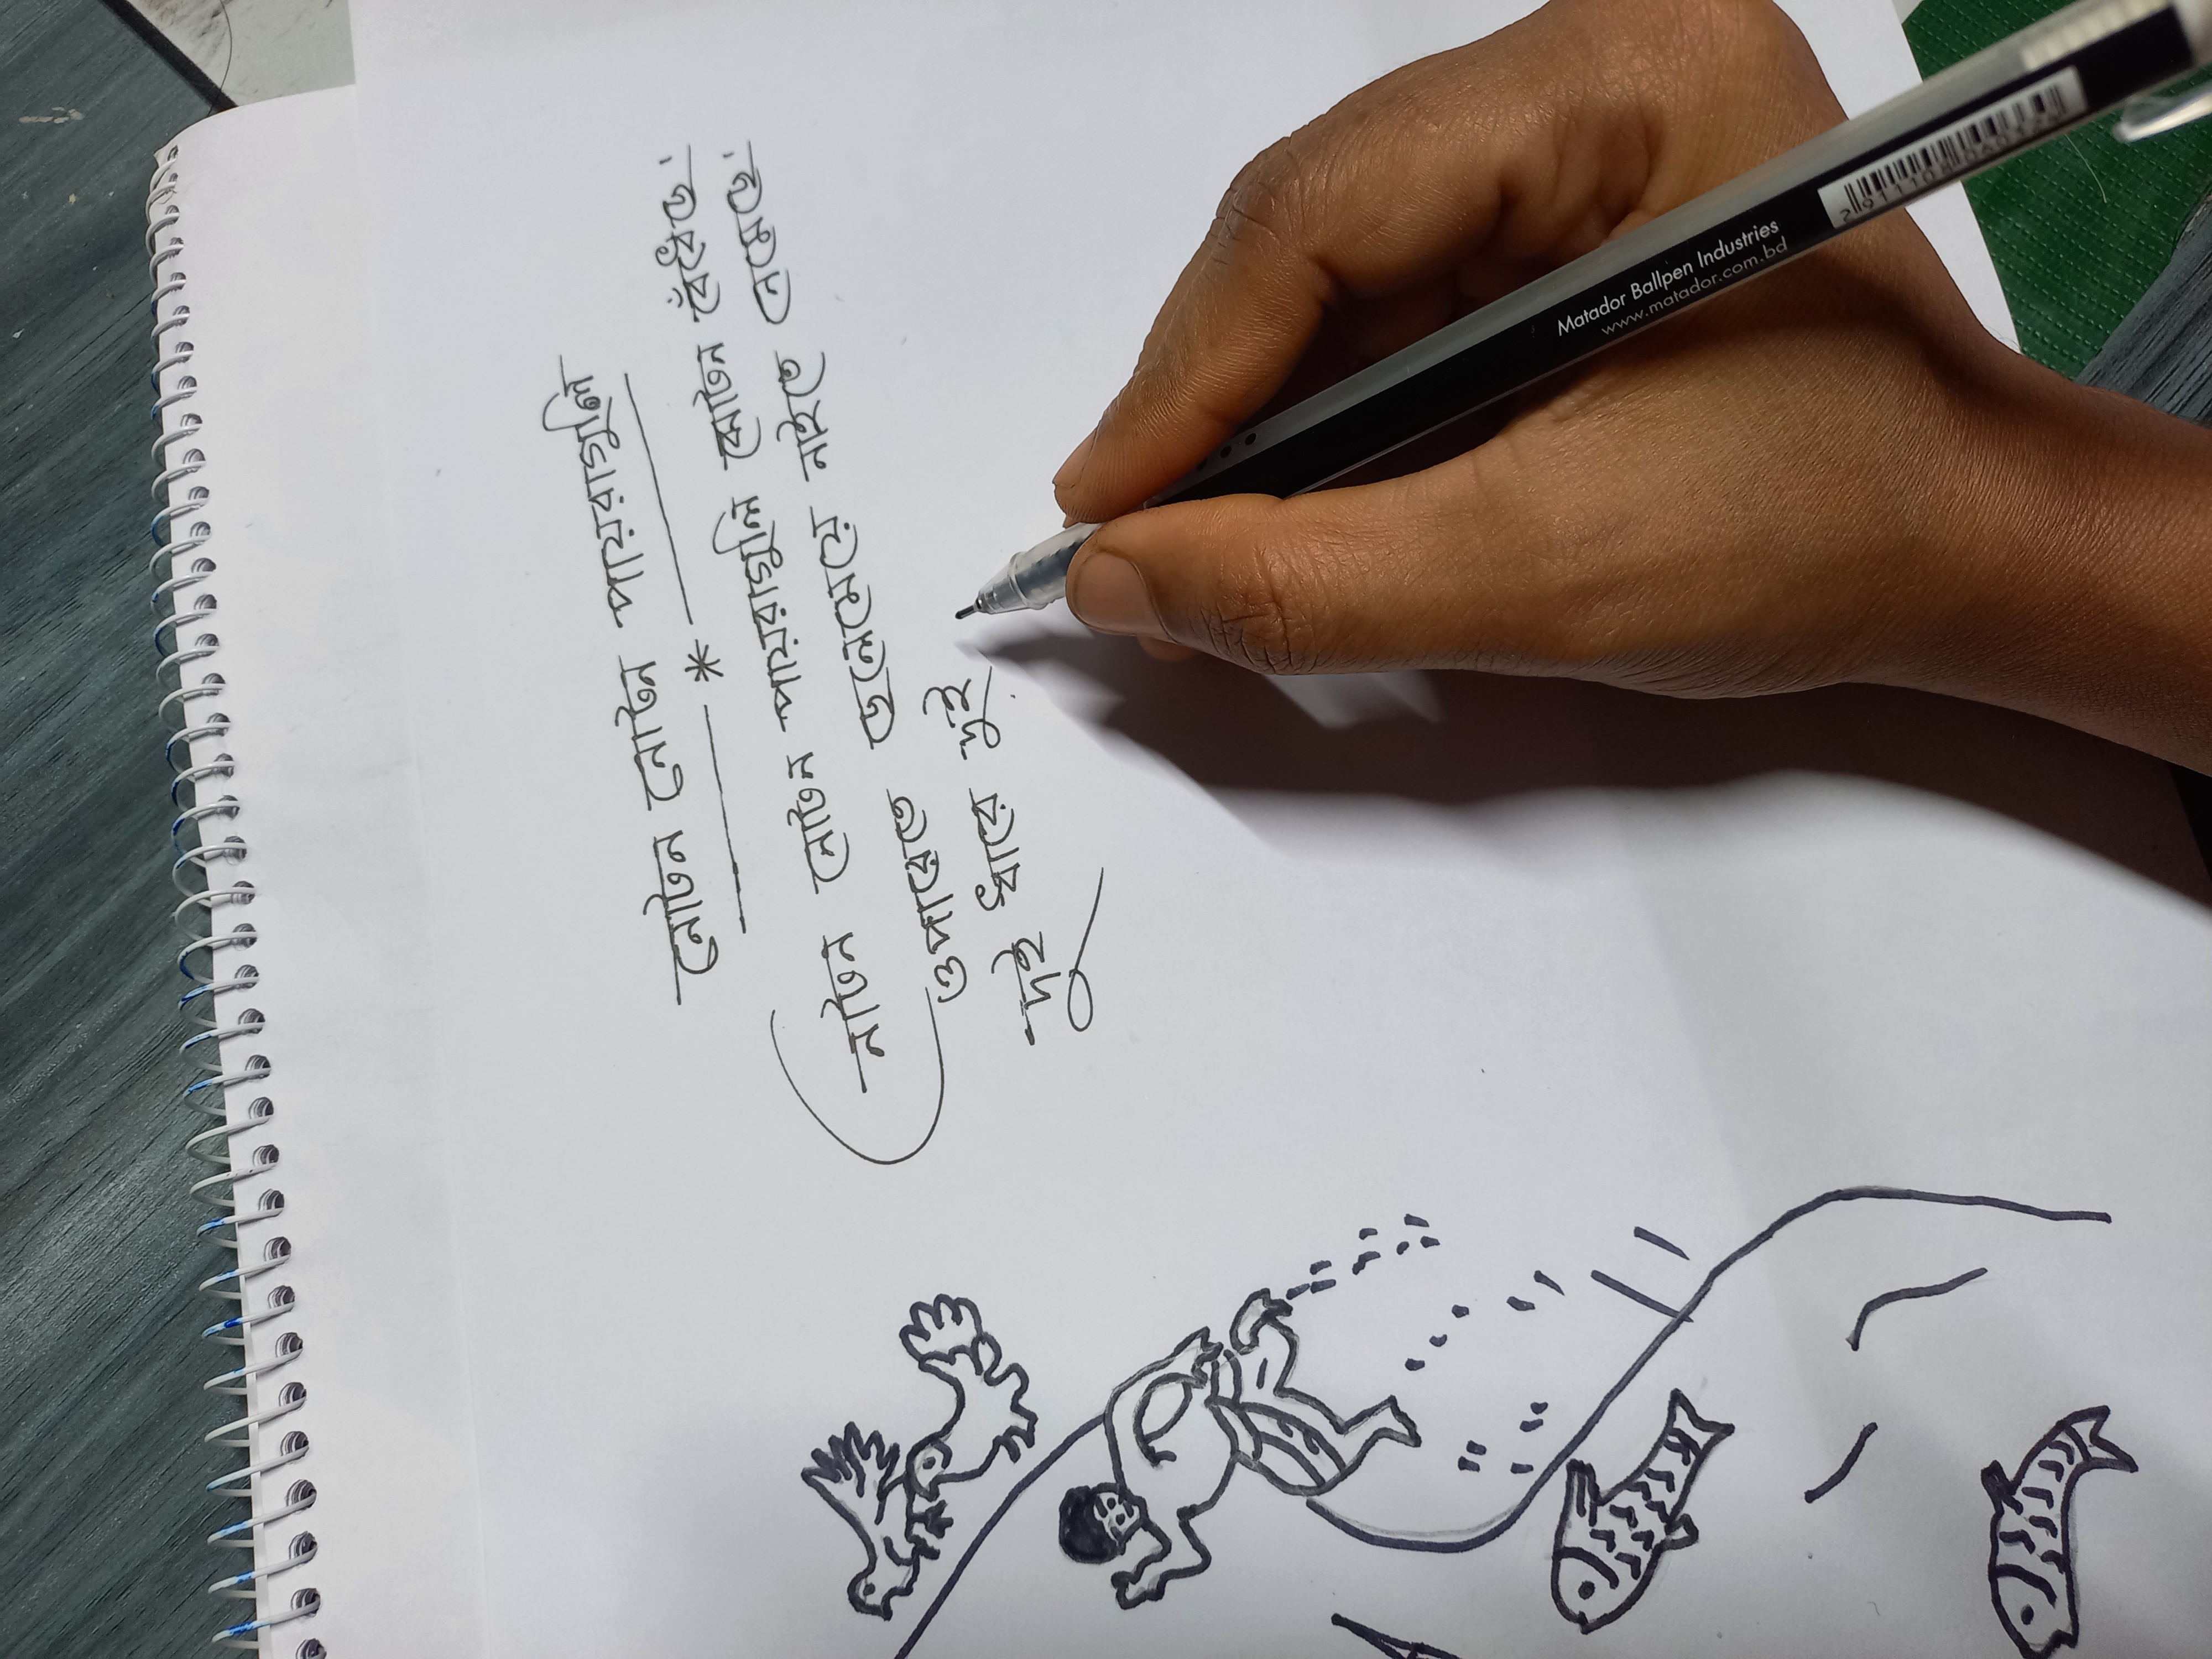 নোটন নোটন পায়রাগুলি
*
নোটন নোটন পায়রাগুলি ঝোটন বেঁধেছে।
ওপারেতে ছেলেমেয়ে নাইতে নেমেছে।
দুই ধারে দুই
Matador Ballpen Industries
www.matador.com.bd